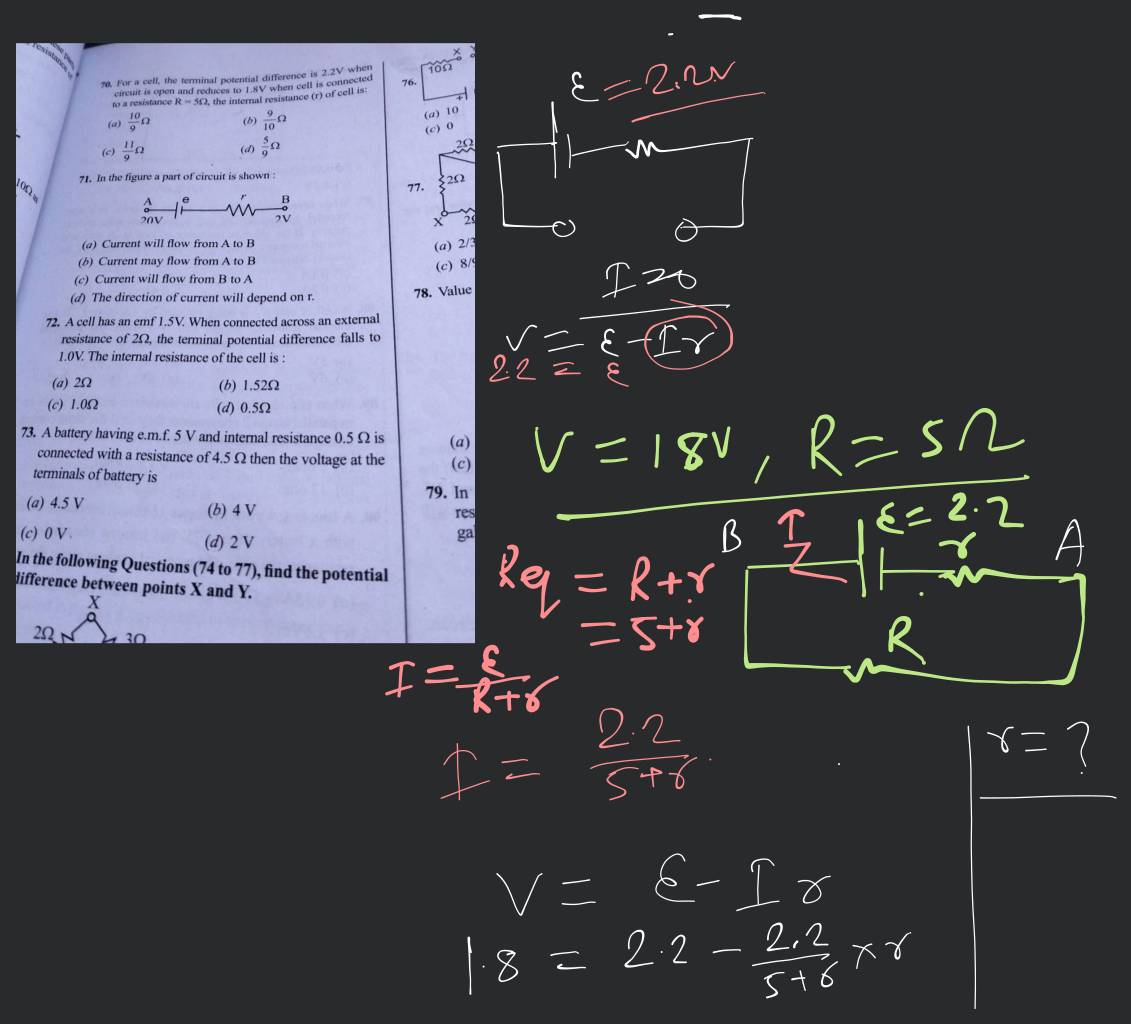 70. For a cell, the terminal potential difference is 2.2V when
circuit is open and reduces to 1.8V when cell is connected
to a resistance R = 5Ω, the internal resistance (r) of cell is:
(a) 10/9 Ω (b) 9/10 Ω
(c) 11/9 Ω (d) 5/9 Ω
71. In the figure a part of circuit is shown :
A e r B
20V 2V
(a) Current will flow from A to B
(b) Current may flow from A to B
(c) Current will flow from B to A
(d) The direction of current will depend on r.
72. A cell has an emf 1.5V. When connected across an external
resistance of 2Ω, the terminal potential difference falls to
1.0V. The internal resistance of the cell is :
(a) 2Ω (b) 1.52Ω
(c) 1.0Ω (d) 0.5Ω
73. A battery having e.m.f. 5 V and internal resistance 0.5 Ω is
connected with a resistance of 4.5 Ω then the voltage at the
terminals of battery is
(a) 4.5 V (b) 4 V
(c) 0 V. (d) 2 V
In the following Questions (74 to 77), find the potential
difference between points X and Y.
X
2Ω 3Ω
10Ω
X
76. 10Ω
(a) 10
(c) 0
2Ω
77. 2Ω
X
(a) 2/3
(c) 8/9
78. Value
(a)
(c)
79. In
res
ga
ε = 2.2V
V = ε - Ir
2.2 = ε
V = 18V, R = 5Ω
B I ε = 2.2 r A
R
Req = R+r
= 5+r
I = ε/R+r
I = 2.2/5+r
r = ?
V = ε - Ir
1.8 = 2.2 - 2.2/5+r × r